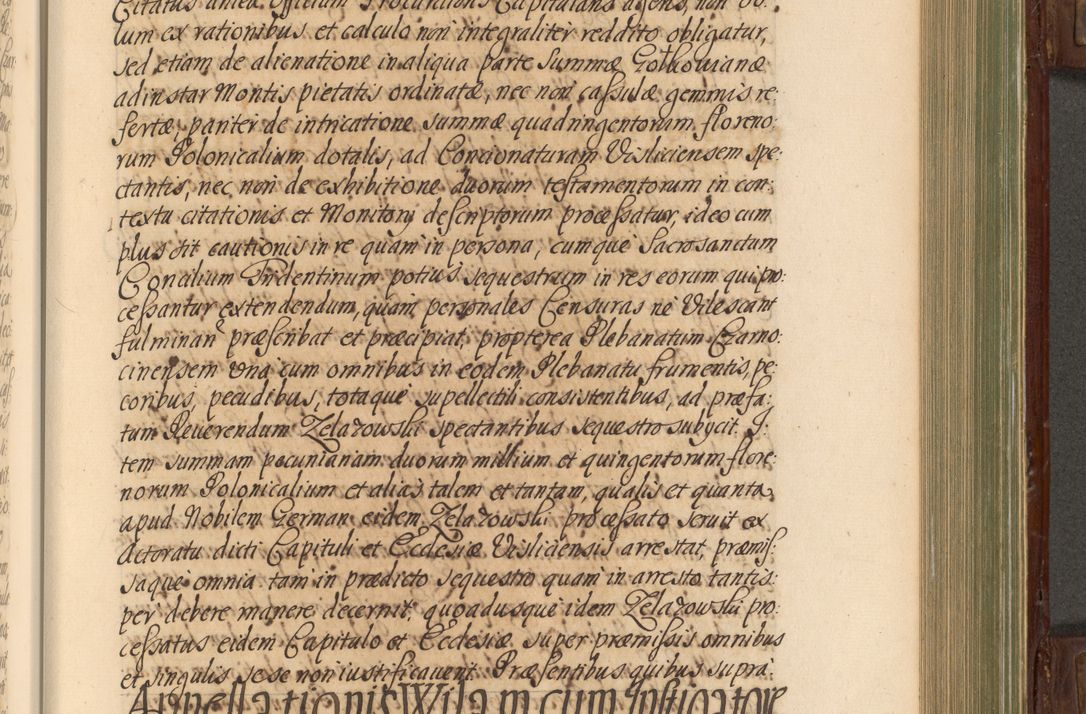 Citatus antea Officium Procuratoris Capitularis agens, non so:
lum ex rationibus et calculo non integraliter reddito obligatur,
sed etiam de alienatione in aliqua parte Summæ Gołkowianæ
ad instar Montis pietatis ordinatæ, nec non cassulæ gemmis re:
fertæ, pariter de intricatione summæ quadringentorum floreno:
rum Polonicalium dotalis, ad Concionaturam Visliciensem spe:
ctantis, nec non de exhibitione duorum testamentorum in con:
textu citationis et Monitorij descriptorum processatur, ideo cum
plus sit cautionis in re quam in persona, cumque Sacrosanctum
Concilium Tridentinum potius sequestrum in res eorum qui pro:
cessantur extendendum, quam personales Censuras ne vilescant
fulminari præscribat et præcipiat, propterea Plebanatum Czarno:
cinensem vna cum omnibus in eodem Plebanatu frumentis, pe:
coribus, pecudibus, totaque supellectili consistentibus, ad præfa:
tum Reverendum Zelazowski spectantibus sequestro subijcit. I:
tem summam pecuniariam duorum millium et quingentorum flore:
norum Polonicalium et alias talem et tantam, qualis et quanta
apud Nobilem German eidem Zelazowski processato seruit ex
Actoratu dicti Capituli et Ecclesiæ Visliciensis arrestat, præmis:
saque omnia tam in prædicto sequestro quam in arresto tantis:
per debere manere decernit, quoadusque idem Zelazowski pro:
cessatus eidem Capitulo et Ecclesiæ super præmissis omnibus
et singulis sese non iustificauerit. Præsentibus quibus supra:
Appellationis Wilam cum Instigatore